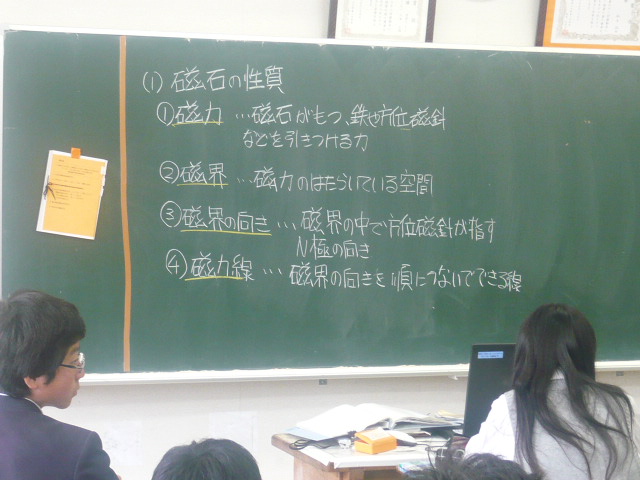 (1) 磁石の性質
①磁力 …磁石がもつ、鉄や方位磁針
などを引きつける力
②磁界 …磁力のはたらいている空間
③磁界の向き …磁界の中で方位磁針が指す
N極の向き
④磁力線 …磁界の向きを順につないでできる線